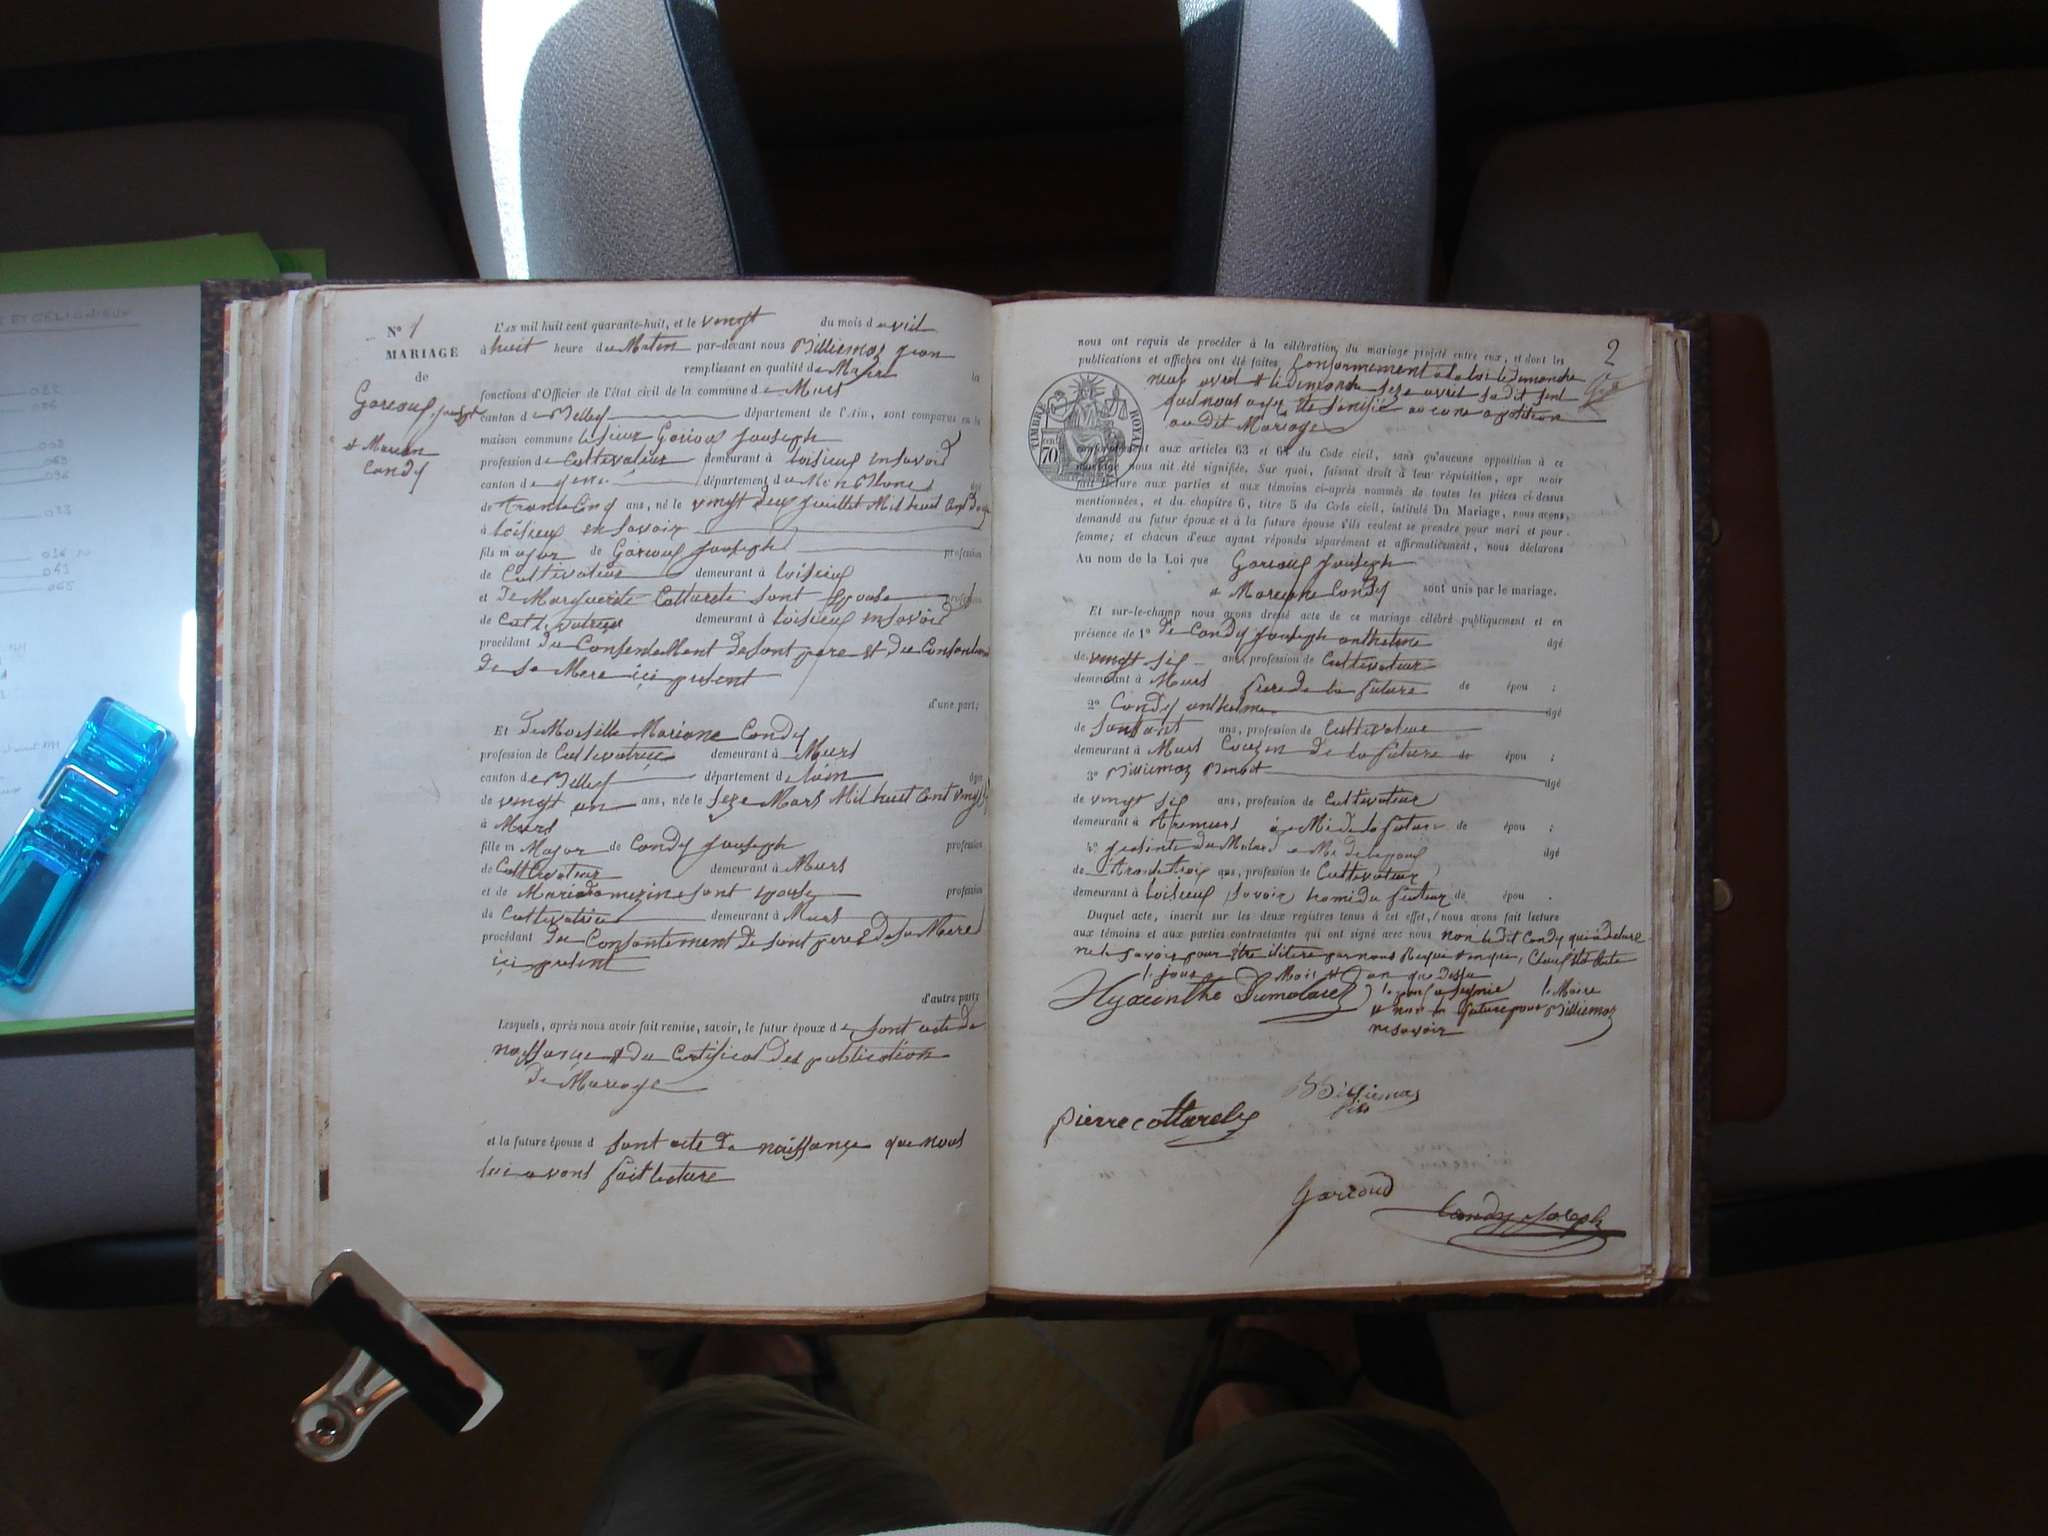 N° 1
MARIAGE
de
Gorioux Jouseph
et Mariane
Condy
L'AN mil huit cent quarante-huit, et le vengt du mois d avril
à huit heure du Maten par-devant nous Billiemoz Jean
remplissant en qualité de Maire la
fonctions d'Officier de l'état civil de la commune de Murs
canton de Belley département de l'Ain, sont comparus en la
maison commune le sieur Gorioux Jouseph
profession de Cultivateur demeurant à loisieux en savoie
canton de département de âgé
de Trante Cinq ans, né le vengt deux juillet Mil huit Cent Douze
à loisieux en savoir
fils m ajor de Gorioux Jouseph profession
de Cultivateur demeurant à loisieux
et de Marguerite Cottarete sont Epouse profession
de Cultivatrice demeurant à loisieux en savoie
procédant du Consentellent de sont pere et du Consantem
de sa Mere ici present
d'une part;
Et deMoiselle Mariane Condy
profession de Cultivatrice demeurant à Murs
canton de Belley département de lain âgée
de vengt un ans, née le seze Mars Mil huit Cent vengt
à Murs
fille m Major de Condy Jouseph profession
de Cultivateur demeurant à Murs
et de Marie sont epouse profession
de Cultivatrice demeurant à Murs
procédant du Consantement de sont pere & de sa Mere
ici present
d'autre part;
Lesquels, après nous avoir fait remise, savoir, le futur époux de sont acte de
naissance et du Certificat des publication
de Mariage
et la future épouse d sont acte de naissance que nous
lui avons fait lecture
2
nous ont requis de procéder à la célébration du mariage projeté entre eux, et dont les
publications et affiches ont été faites Conformement a la loi le dimanche
neuf avril et le dimanche seze avril
quel nous aye ete senifie aucune opotition
au dit Mariage
TIMBRE ROYAL
70
conformément aux articles 63 et 64 du Code civil, sans qu'aucune opposition à ce
mariage nous ait été signifiée, Sur quoi, faisant droit à leur réquisition, apr avoir
fait lecture aux parties et aux témoins ci-après nommés de toutes les pièces ci-dessus
mentionnées, et du chapitre 6, titre 5 du Code civil, intitulé Du Mariage, nous avons
demandé au futur époux et à la future épouse s'ils veulent se prendre pour mari et pour
femme; et chacun d'eux ayant répondu séparément et affirmativement, nous déclarons
Au nom de la Loi que Gorioux Jouseph
et Mariane Condy sont unis par le mariage.
Et sur-le-champ nous avons dressé acte de ce mariage célébré publiquement et en
présence de 1° de Condy Jouseph anthelme âgé
de vengt six ans, profession de Cultivateur
demeurant à Murs frere de la future de épou ;
2° Condy anthelme âgé
de soutant ans, profession de Cultivateur
demeurant à Murs Couzen de la future de épou ;
3° Billiemoz Benoit âgé
de vengt six ans, profession de Cultivateur
demeurant à a Mi de la future de épou ;
4° Jasinte du Molard a Mi de lepoux âgé
de Trante troi ans, profession de Cultivateur
demeurant à loisieux savoir lami du futeur de épou .
Duquel acte, inscrit sur les deux registres tenus à cet effet, nous avons fait lecture
aux témoins et aux parties contractantes qui ont signé avec nous non le dit Condy qui a declare
ne le savoir pour être ilitere par nous Requi
le jour Mois et an que dessu
Hyacinthe Dumolard
le Maire
et non la future pour Billiemoz
ne savoir
B Billiemoz
fils
pierre cottarel
Gorioud
Condy Joseph